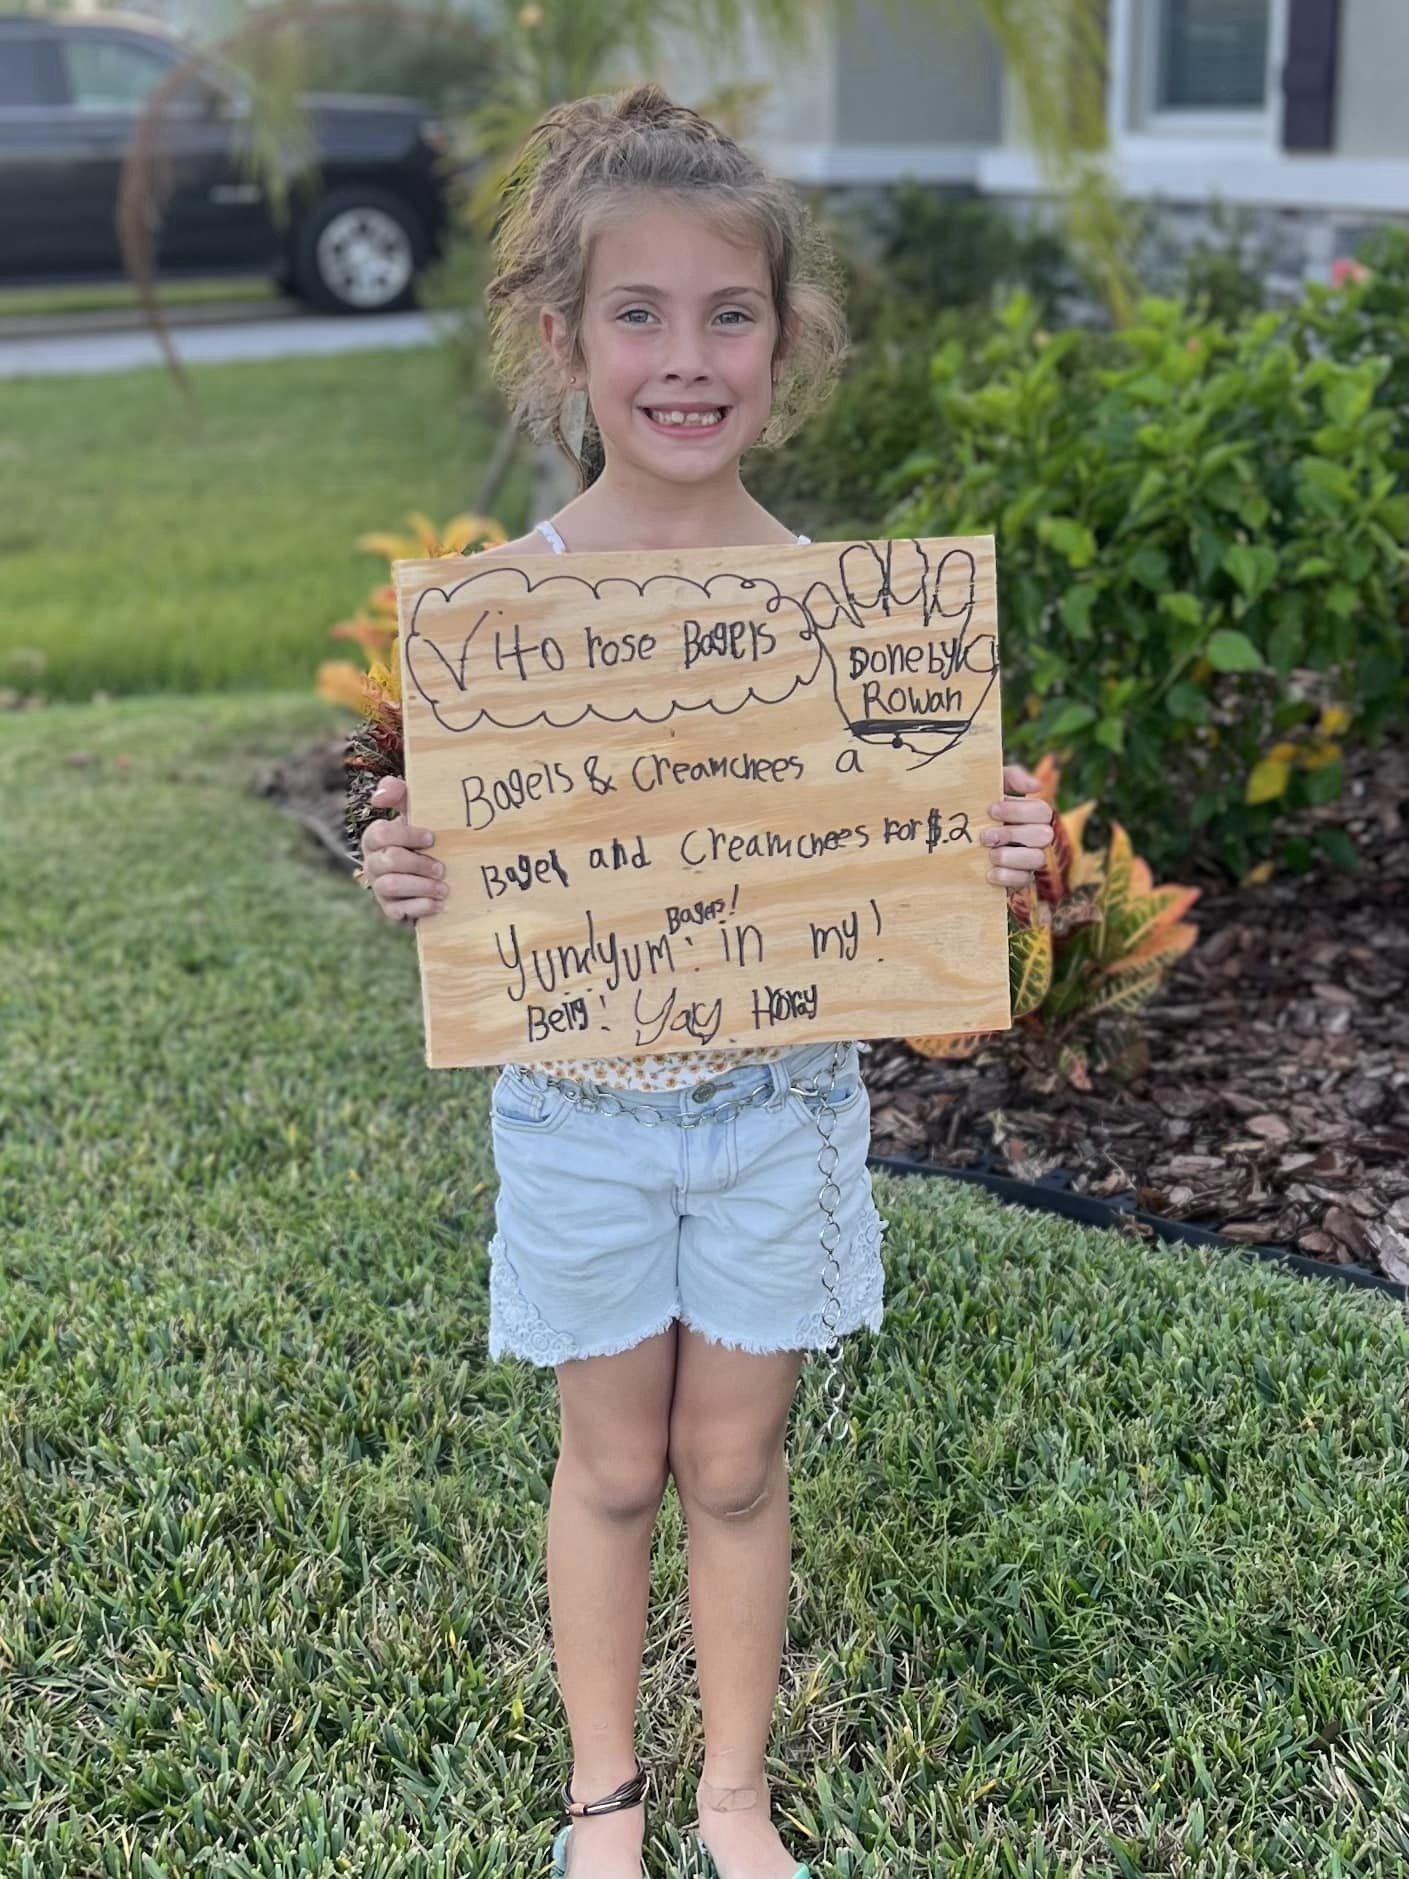 Vito rose Bagels
Doneby
Rowan
Bagels & Creamchees a
Bagel and Creamchees For $.2
Bagels!
Yumyum! in my!
Belly! Yay Hooray